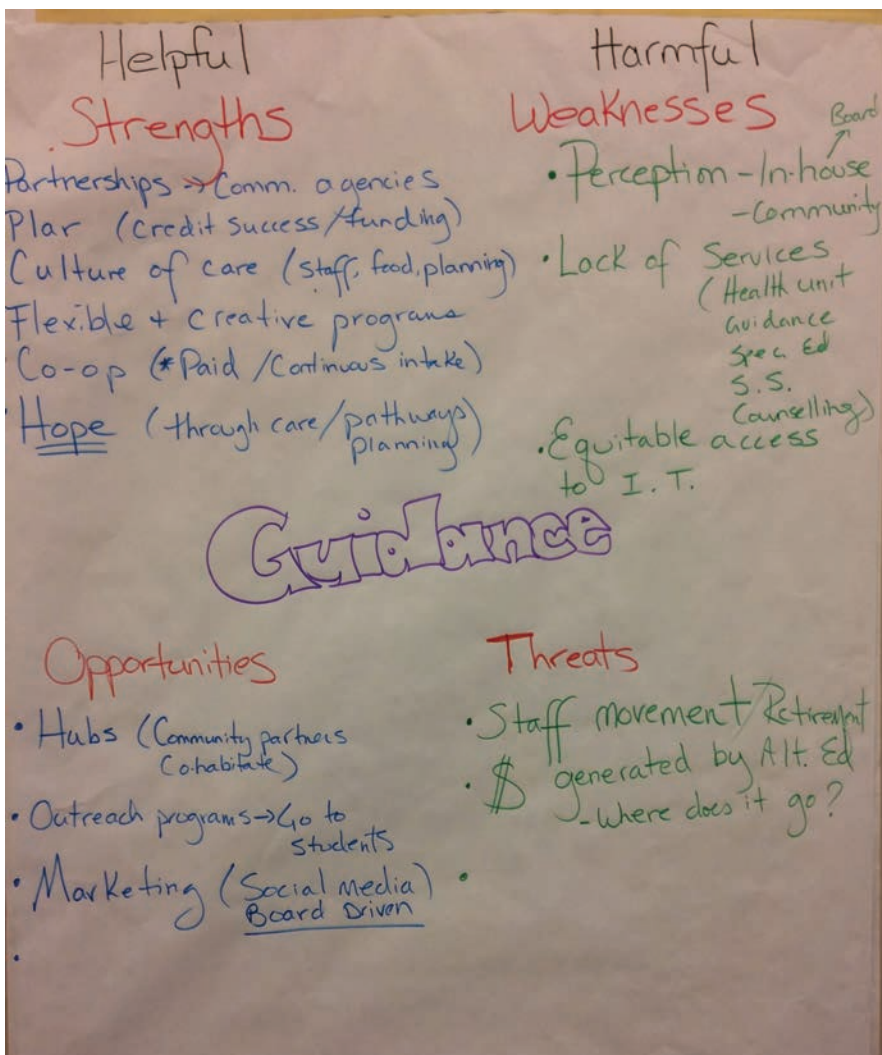 Helpful
Strengths
Partnerships → Comm. agencies
Plar (credit success/funding)
Culture of care (staff, food, planning)
Flexible + creative programs
Co-op (*Paid /Continuous intake)
• Hope (through care/pathways
planning)
Harmful
Weaknesses
Board
• Perception - In-house
- Community
• Lack of Services
(Health unit
Guidance
Spec. Ed
S.S.
Counselling)
• Equitable access
to I.T.
Guidance
Opportunities
• Hubs (Community partners
Cohabitate)
• Outreach programs → Go to
students
• Marketing (Social media)
Board Driven
•
Threats
• Staff movement/Retirement
• $ generated by Alt. Ed
- Where does it go?
•